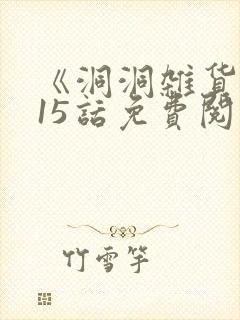 《洞洞雑货
15話免費閱
竹雪竿